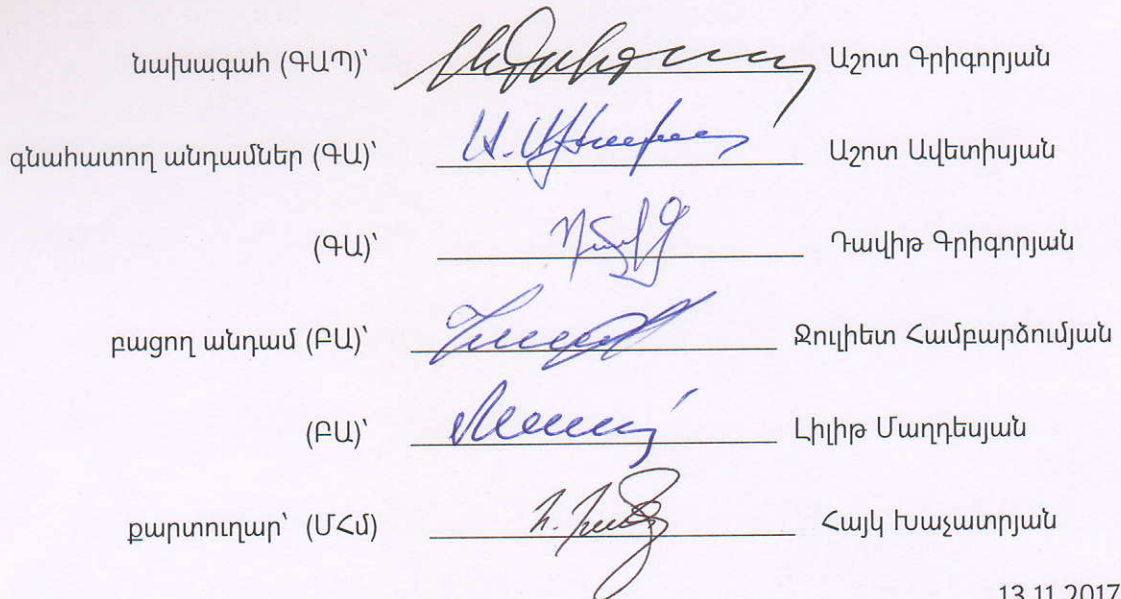 նախագահ (ԳԱՊ)՝ Աշոտ Գրիգորյան
գնահատող անդամներ (ԳԱ)՝ Աշոտ Ավետիսյան
(ԳԱ)՝ Դավիթ Գրիգորյան
բացող անդամ (ԲԱ)՝ Ջուլիետ Համբարձումյան
(ԲԱ)՝ Լիլիթ Մաղդեսյան
քարտուղար՝ (ՄՀմ) Հայկ Խաչատրյան
13.11.2017